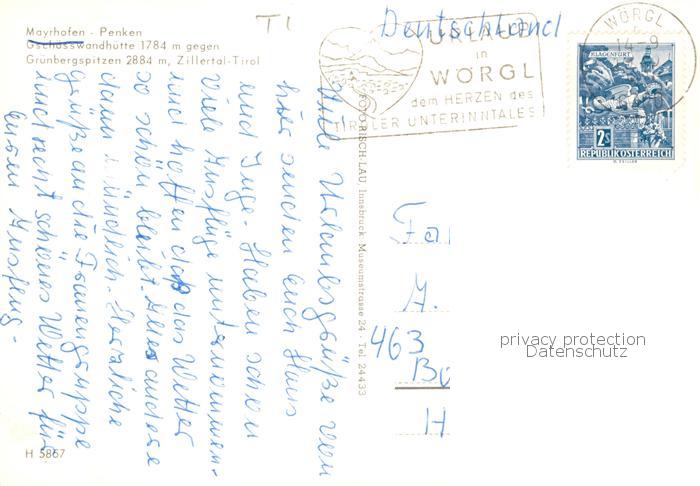 Mayrhofen - Penken
Gschösswandhütte 1784 m gegen
Grünbergspitzen 2884 m, Zillertal-Tirol
TI
Deutschland
URLAUB
in
WÖRGL
dem HERZEN des
TIROLER UNTERINNTALES!
WÖRGL
14.-9
KLAGENFURT
2S
REPUBLIK ÖSTERREICH
Viele Urlaubsgrüße von
hier senden euch Hans
und Inge. Haben schon
viele Ausflüge unternommen
und hoffen daß das Wetter
so schön bleibt. Alles andere
dann mündlich. Herzliche
Grüße an die Frauengruppe
und recht schönes Wetter für
euren Ausflug.
RISCH-LAU Innsbruck Museumstrasse 24 - Tel. 24433
Fa
A.
463
Bo
H
privacy protection
Datenschutz
H 5867